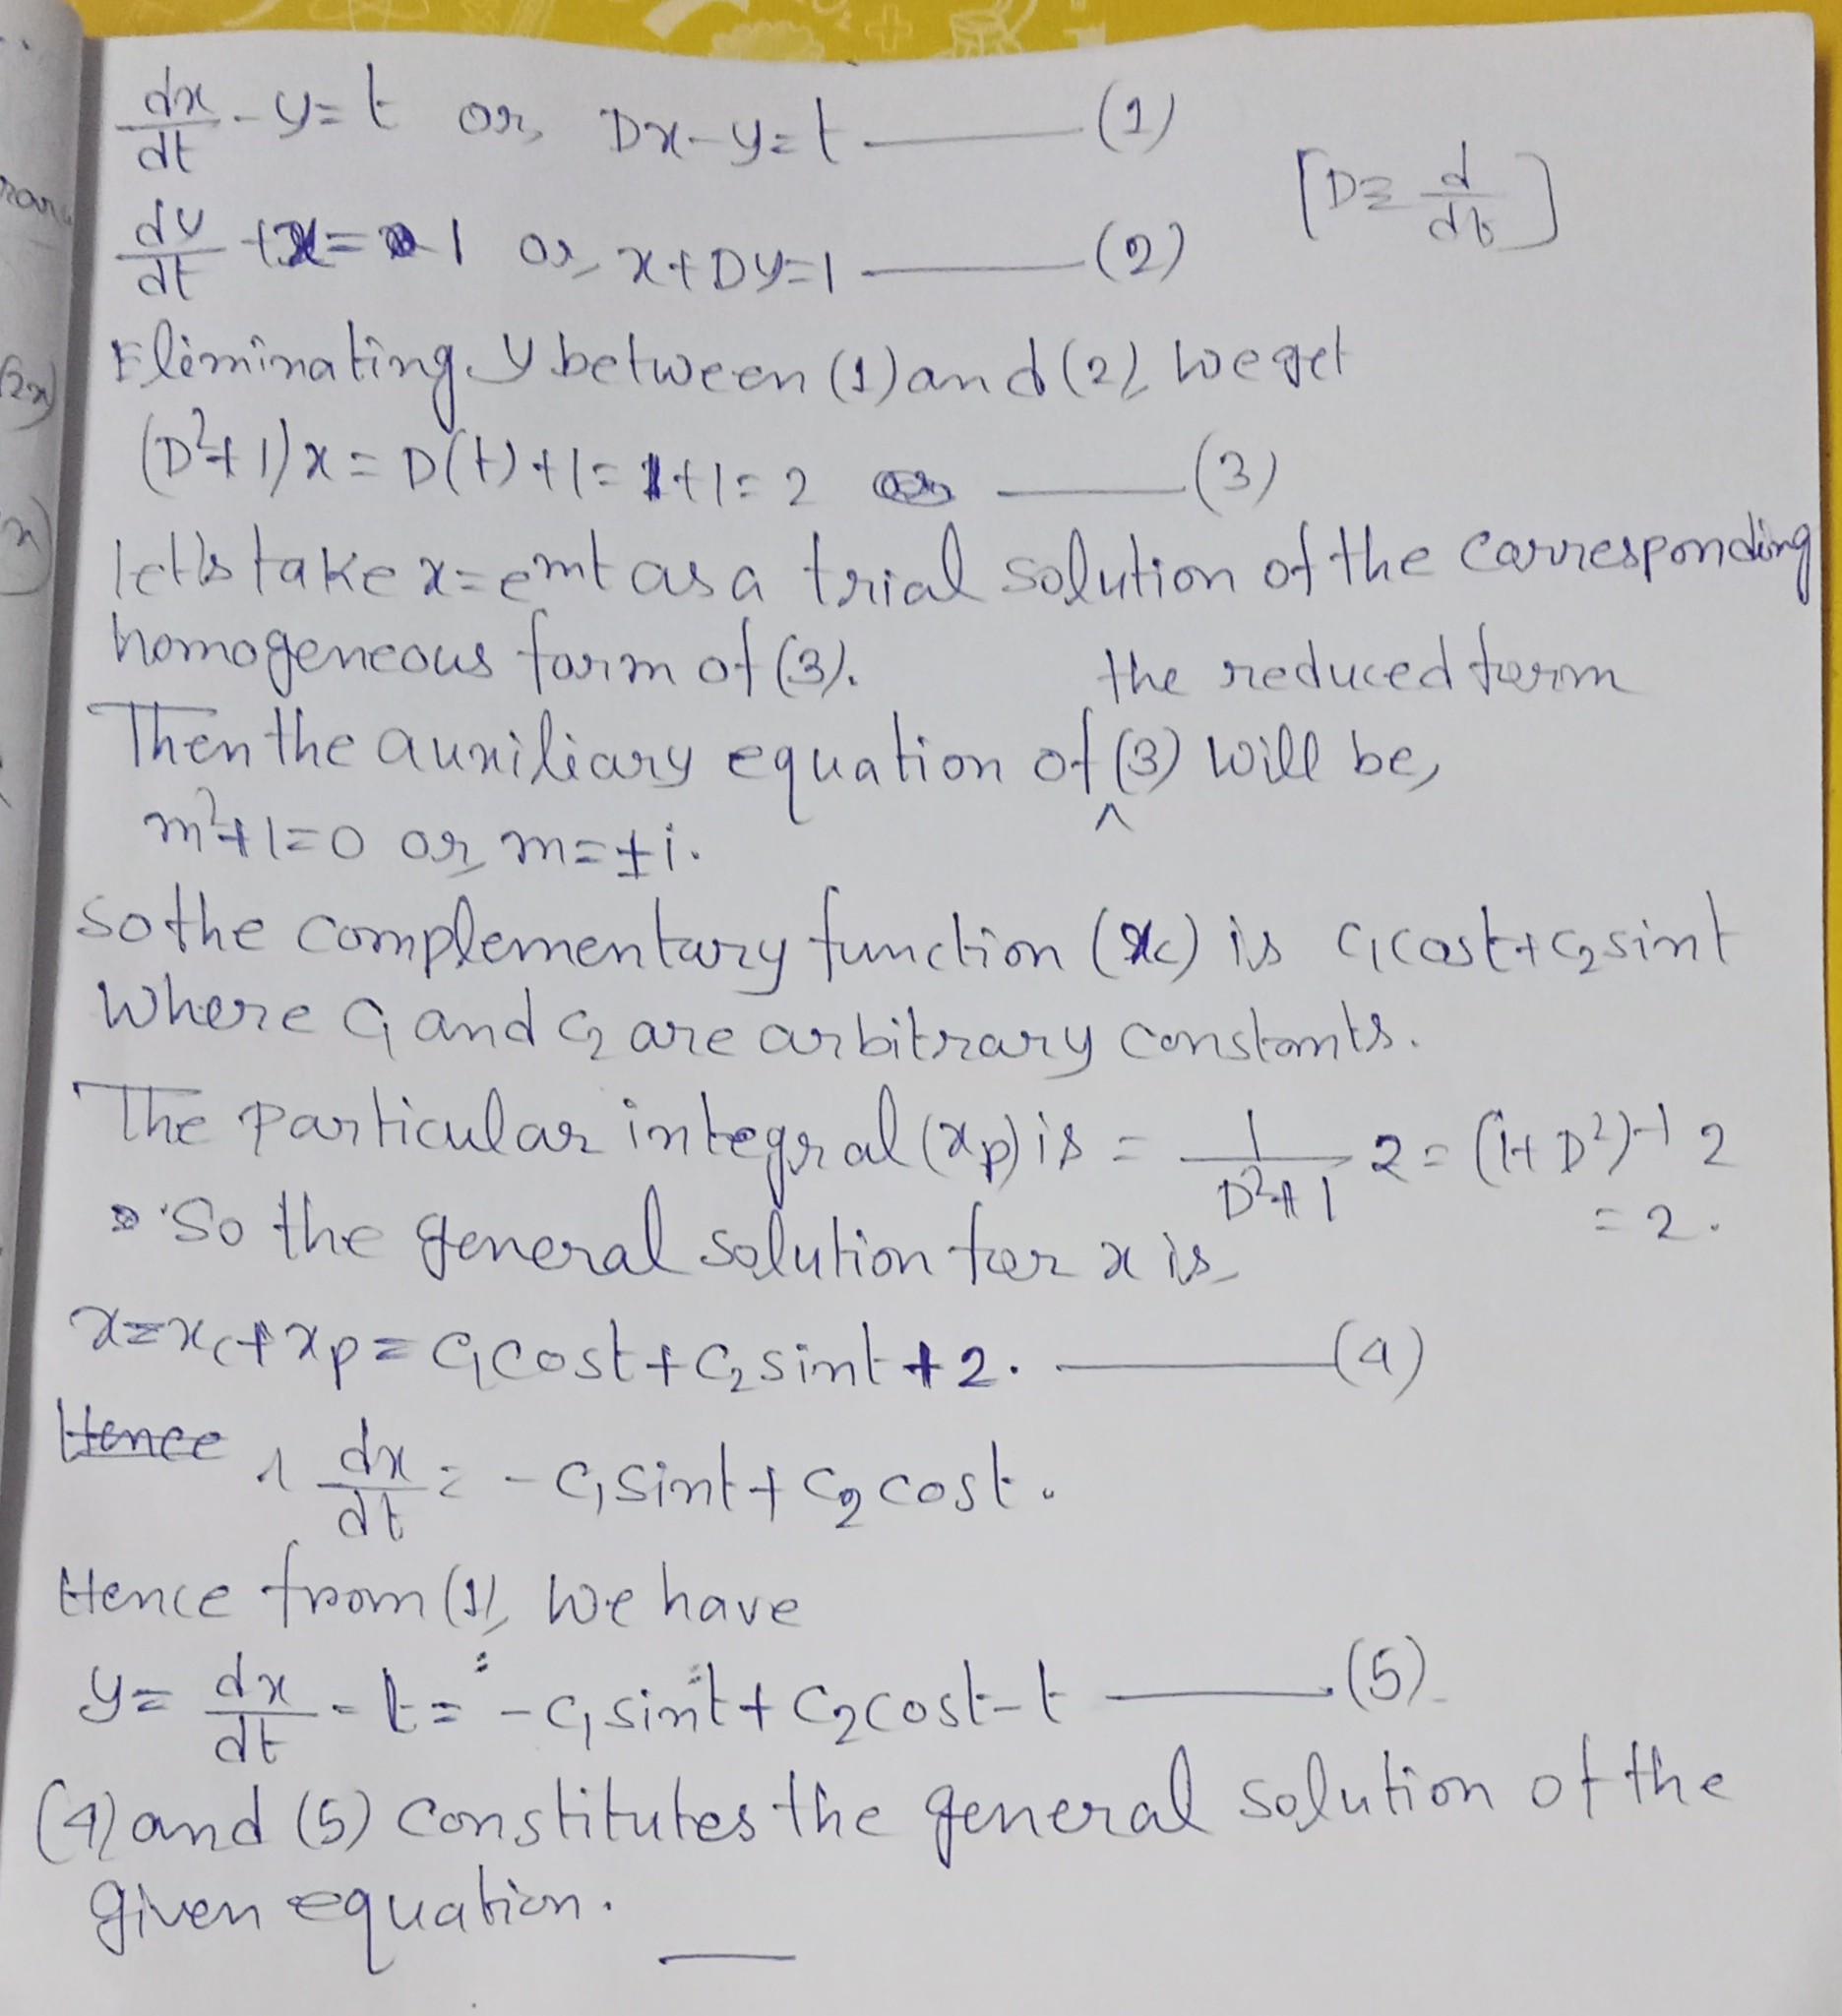 dx/dt - y = t or, Dx - y = t ——— (1)
[D ≡ d/dt]
dy/dt + x = 1 or, x + Dy = 1 ——— (2)
Eliminating y between (1) and (2), we get
(D²+1)x = D(t)+1 = 1+1 = 2 ——— (3)
let's take x = e^mt as a trial solution of the corresponding
homogeneous form of (3).
the reduced form
Then the auxiliary equation of ^ (3) will be,
m²+1=0 or, m=±i.
So the complementary function (xc) is c₁cost+c₂sint
where c₁ and c₂ are arbitrary constants.
The particular integral (xp) is = 1/(D²+1) 2 = (1+D²)^-1 2
= 2.
So the general solution for x is,
x = xc + xp = c₁cost + c₂sint + 2. ——— (4)
Hence
dx/dt = -c₁sint + c₂cost.
Hence from (1), we have
y = dx/dt - t = -c₁sint + c₂cost - t ——— (5)
(4) and (5) constitutes the general solution of the
given equation.